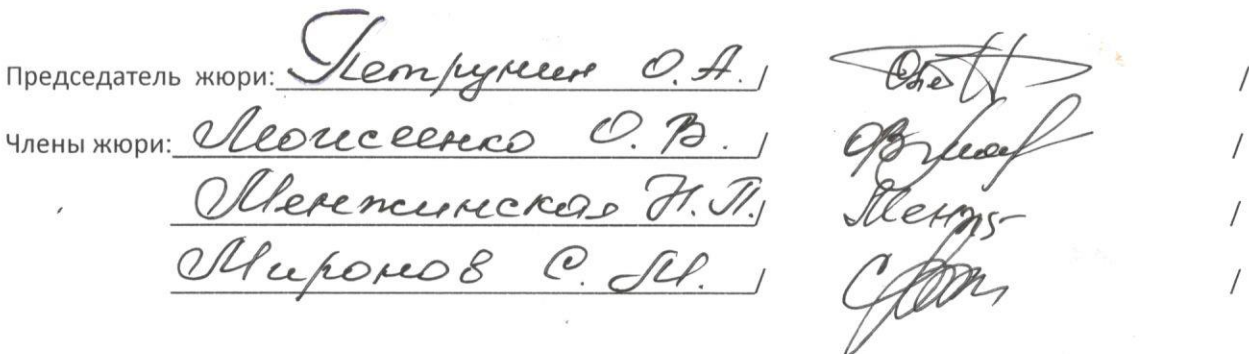 Председатель жюри: Петрунин О.А. / /
Члены жюри: Моисеенко О.В. / /
Менжинская Н.П. / Менж /
Миронов С.М. / /